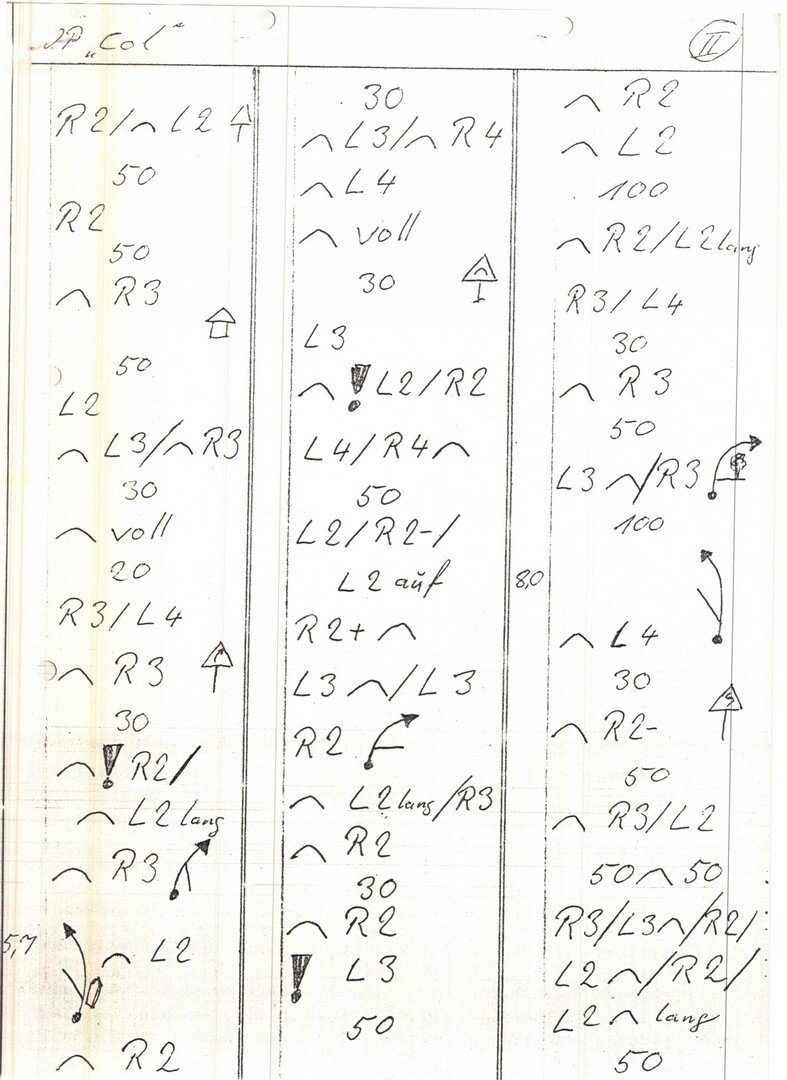 „Col“
II
R2/⌒ L2
50
R2
50
⌒ R3
50
L2
⌒ L3/⌒ R3
30
⌒ voll
20
R3/L4
⌒ R3
30
⌒ ! R2/
⌒ L2 lang
⌒ R3
5,7
⌒ L2
⌒ R2
30
⌒ L3/⌒ R4
⌒ L4
⌒ voll
30
L3
⌒ ! L2/R2
L4/R4 ⌒
50
L2/R2-/
L2 auf
R2+ ⌒
L3 ⌒/L3
R2
⌒ L2 lang/R3
⌒ R2
30
⌒ R2
! L3
50
⌒ R2
⌒ L2
100
⌒ R2/L2 lang
R3/L4
30
⌒ R3
50
L3 ⌒/R3
100
8,0
⌒ L4
30
⌒ R2-
50
⌒ R3/L2
50 ⌒ 50
R3/L3 ⌒/R2/
L2 ⌒/R2/
L2 ⌒ lang
50